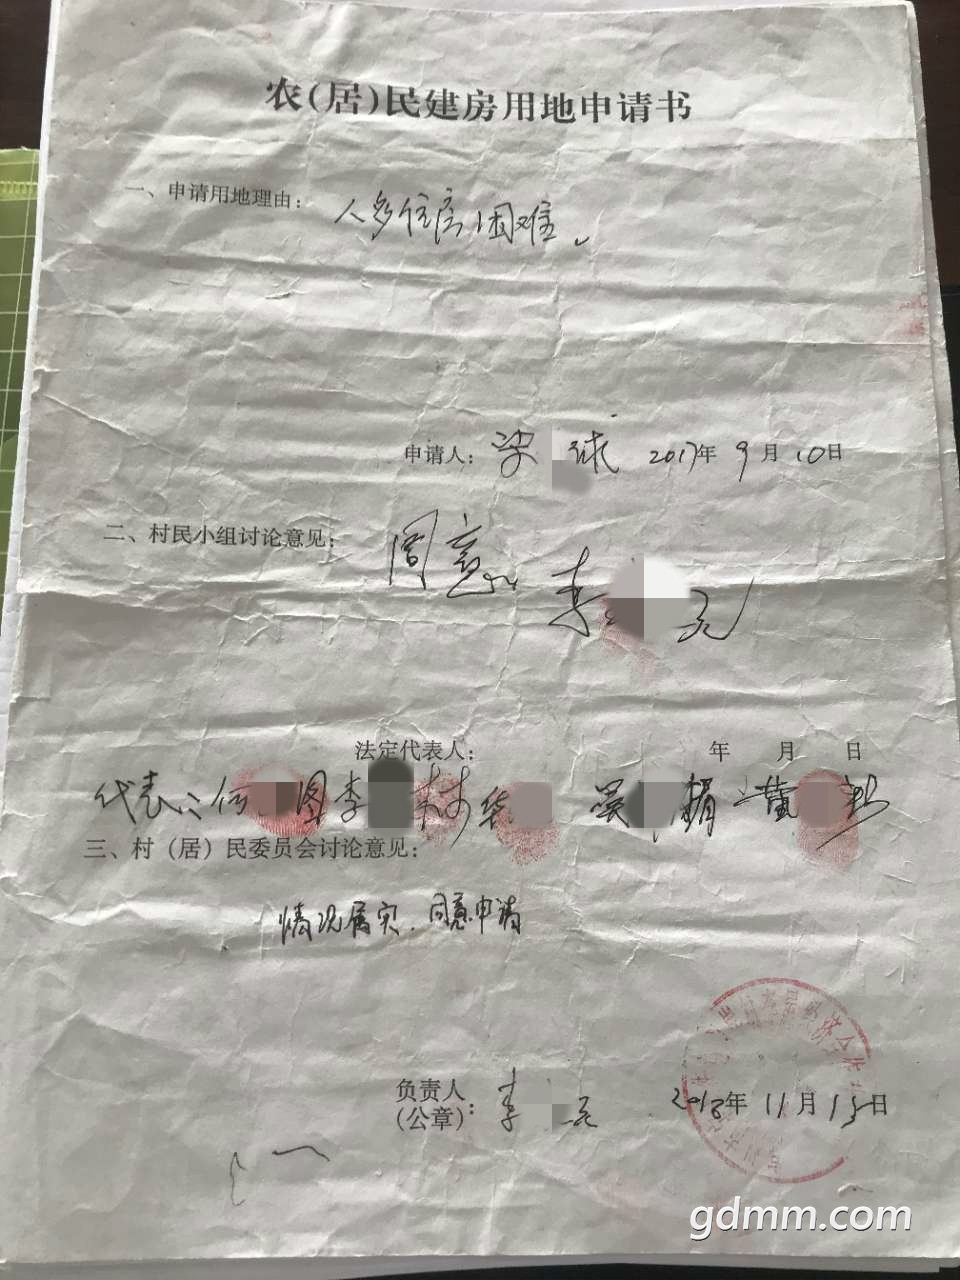 农(居)民建房用地申请书
一、申请用地理由: 人多住房困难。
申请人: 梁 球 2017年 9月 10日
二、村民小组讨论意见: 同意 李
法定代表人: 年 月 日
代表: 何 图 李 林 华 吴 娟 黄
三、村(居)民委员会讨论意见:
情况属实. 同意申请
负责人
(公章): 李 2018年 11月 15日
gdmm.com